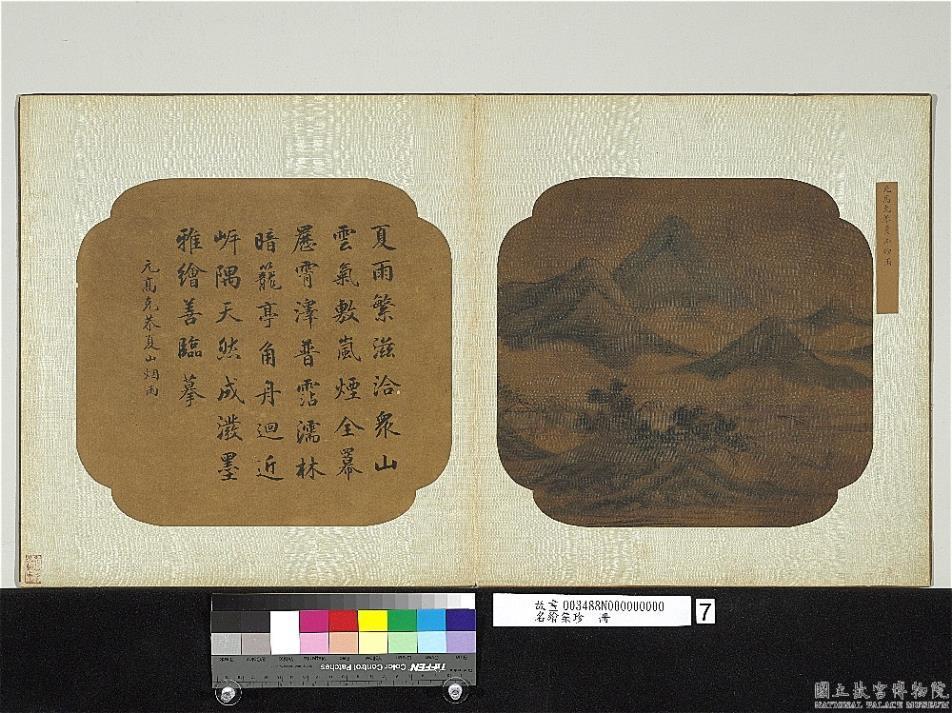 夏雨繁滋洽眾山
雲氣敷嵐煙全冪
屭霄澤普霑濡林
暗籠亭角舟迴近
㟁隅天然成潑墨
雅繪善臨摹
元高克恭夏山烟雨
元高克恭夏山烟雨
故畫 003488N000000000
名繪集珍 冊
7
TIFFEN Color Control Patches
國立故宮博物院
NATIONAL PALACE MUSEUM